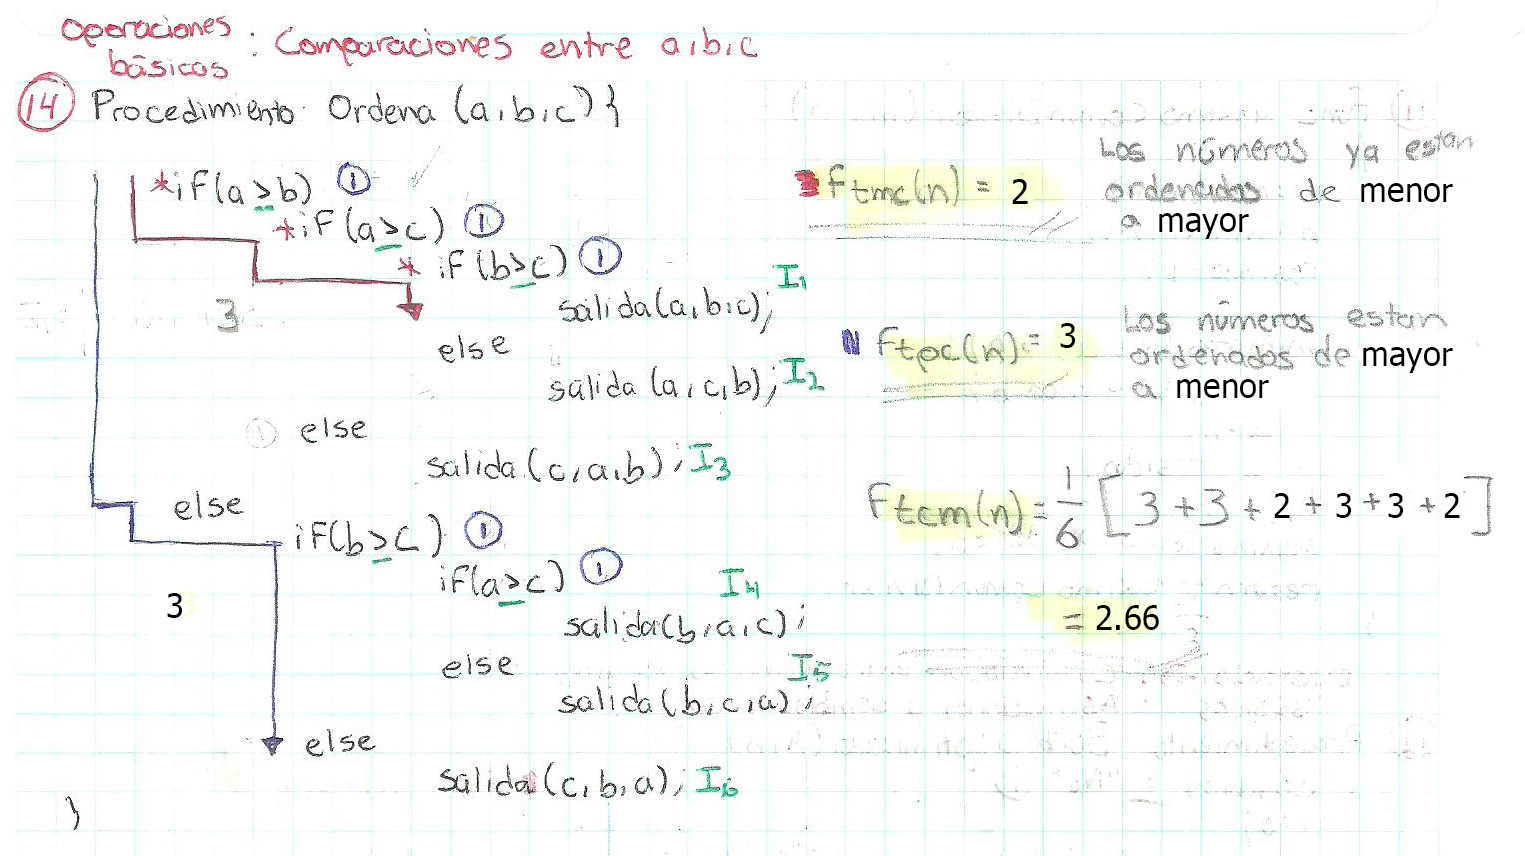 operaciones básicas : Comparaciones entre a,b,c
14 Procedimiento Ordena (a,b,c) {
*if(a>b) 1
*if(a>c) 1
* if(b>c) 1
salida(a,b,c); I1
else
salida (a,c,b); I2
1 else
salida(c,a,b); I3
3
else
if(b>c) 1
if(a>c) 1
I4
salida(b,a,c);
else I5
salida(b,c,a);
else
salida(c,b,a); I6
3
}
ftmc(n) = 2
Los números ya estan
ordenados de menor
a mayor
ftpc(n) = 3
Los números estan
ordenados de mayor
a menor
ftcm(n) = 1/6 [3+3+2+3+3+2]
= 2.66